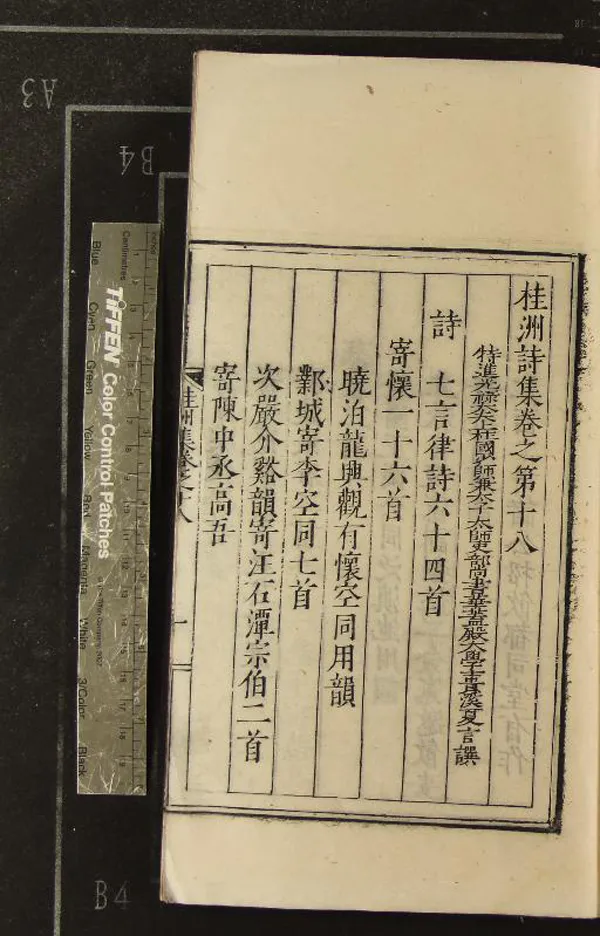 桂洲詩集卷之第十八
特進光祿大夫上柱國少師兼太子太師吏部尚書華蓋殿大學士貴溪夏言譔
詩 七言律詩六十四首
寄懷一十六首
曉泊龍興觀有懷空同用韻
鄴城寄李空同七首
次嚴介谿韻寄汪石潭宗伯二首
寄陳中丞高吾
桂洲集卷之十八
一
A3
B4
B4
Centimetres
TIFFEN Color Control Patches
Blue
Cyan
Green
Yellow
Red
Magenta
White
3/Color
Black